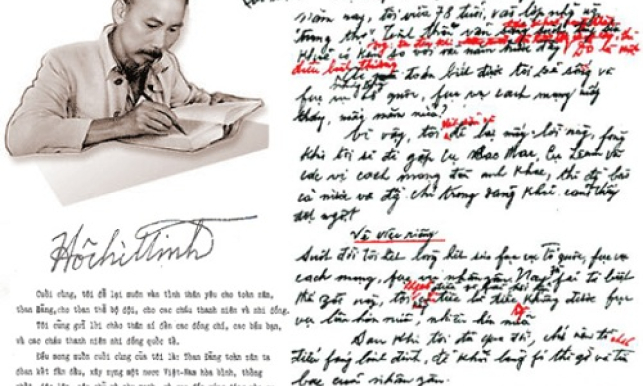 Hồ Chí Minh
Cuối cùng, tôi để lại muôn vàn tình thân yêu cho toàn dân,
toàn Đảng, cho toàn thể bộ đội, cho các cháu thanh niên và nhi đồng.
Tôi cũng gửi lời chào thân ái đến các đồng chí, các bầu bạn,
và các cháu thanh niên nhi đồng quốc tế.
Điều mong muốn cuối cùng của tôi là: Toàn Đảng toàn dân ta
đoàn kết phấn đấu, xây dựng một nước Việt-Nam hòa bình, thống
năm nay, tôi vừa 78 tuổi, vào lớp những
trung thọ. Tinh thần vẫn
khoẻ có kém so với vài năm trước đây. Đó là một
điều bình thường
toán biết được tôi sẽ sống và
cách mạng mấy
tháng, mấy năm nữa?
Vì vậy, tôi để lại mấy lời này, phòng
khi tôi sẽ đi gặp cụ Các Mác, cụ Lênin và
các vị cách mạng đàn anh khác, thì đồng bào
cả nước và đồng chí trong Đảng khỏi cảm thấy
đột ngột
Về việc riêng
Suốt đời tôi hết lòng hết sức phục vụ Tổ quốc, phục vụ
cách mạng, phục vụ nhân dân. Nay phải từ biệt
thế giới này, tôi tiếc là tiếc không được phục
vụ lâu hơn nữa, nhiều hơn nữa
Sau khi tôi đã qua đời, chớ nên tổ chức
điếu phúng linh đình, để khỏi lãng phí thì giờ và tiền
bạc của nhân dân.